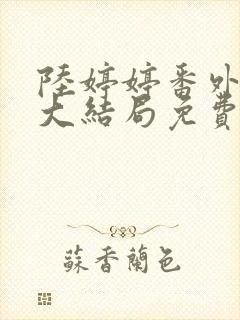 陸婷婷番外
大結局免費
蘇香蘭色